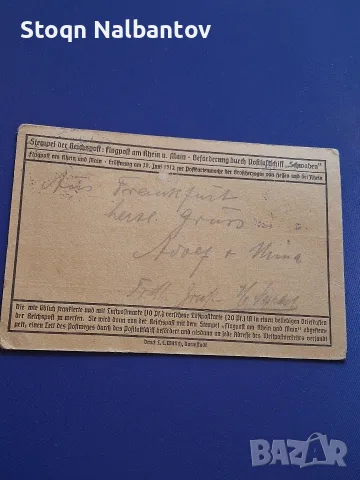 Stoqn Nalbantov
Stempel der Reichspost: Flugpost am Rhein u. Main - Beförderung durch Postluftschiff „Schwaben“
Flugpost am Rhein und Main - Eröffnung am 10. Juni 1912 zur Postkartenwoche der Großherzogin von Hessen und bei Rhein
Aus Frankfurt
herzl. Gruss
Adolf + Mina
Die wie üblich frankierte und mit Luftpostmarke (10 Pf.) versehene Luftpostkarte (20 Pf.) ist in einen beliebigen Briefkasten
der Reichspost zu werfen. Sie wird dann von der Reichspost mit dem Stempel „Flugpost am Rhein und Main“ abgestem-
pelt, einen Teil des Postweges durch das Postluftschiff befördert und alsdann an jede Adresse des Weltpostvereins versandt
Druck L.C.Wittich, Darmstadt
BAZAR